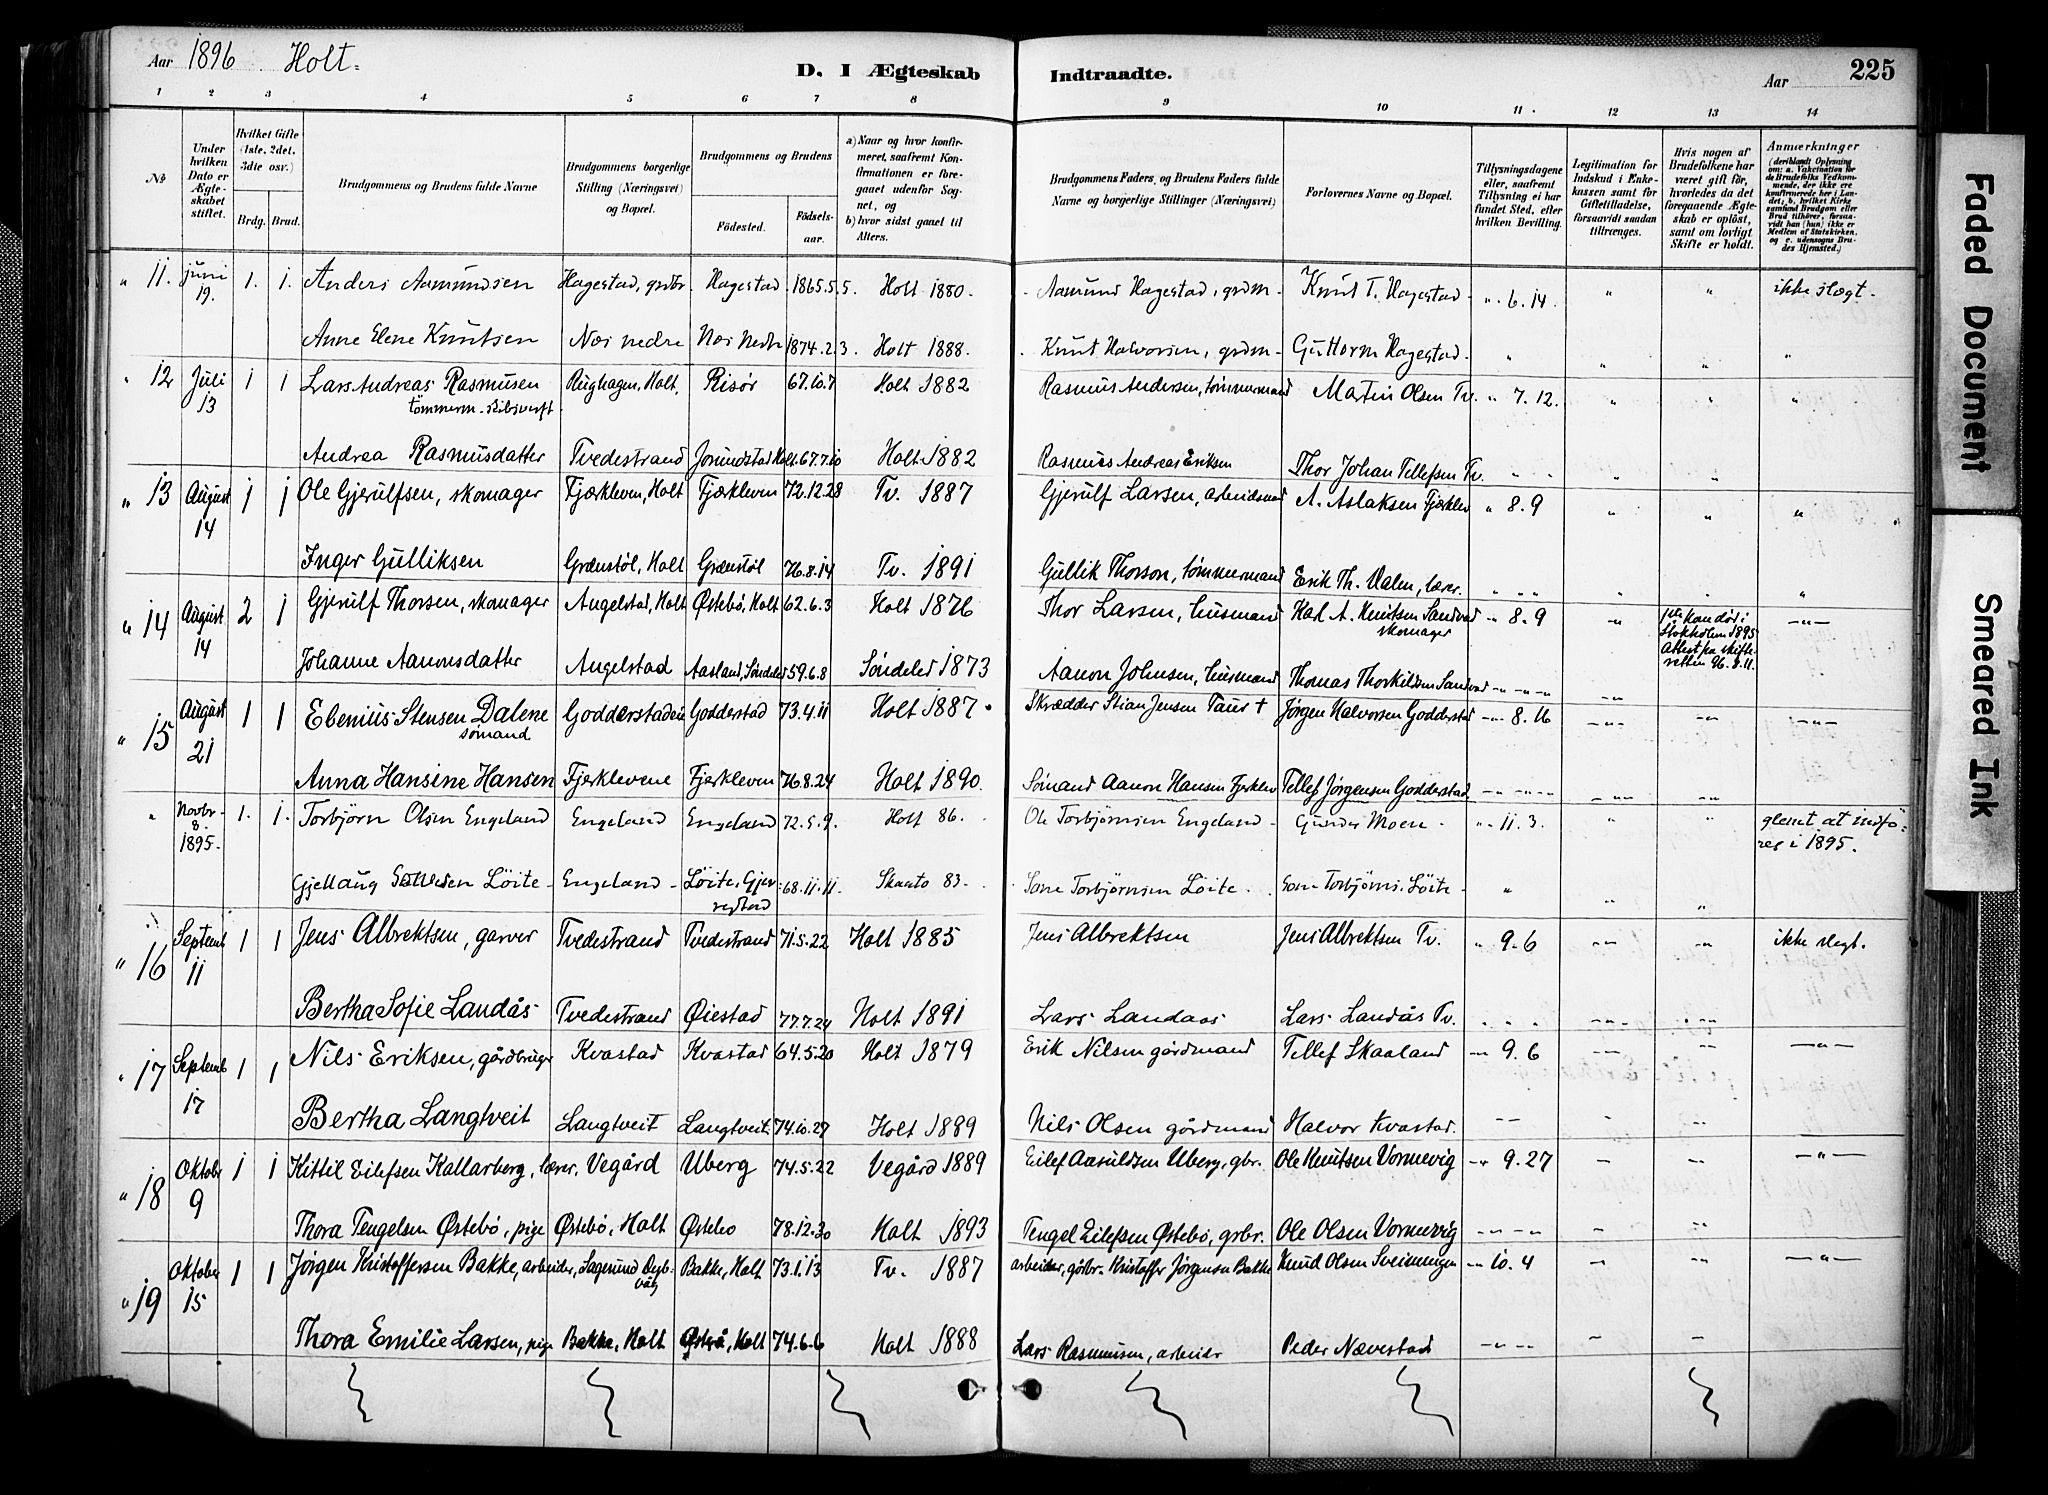 Aar 1896 Holt.
D. I Ægteskab Indtraadte.
Aar 225
1 2 3 4 5 6 7 8 9 10 11 12 13 14
No
Under hvilken Dato er Ægteskabet stiftet.
Hvilket Gifte (1ste, 2det, 3die osv.)
Brdg. Brud.
Brudgommens og Brudens fulde Navne
Brudgommens borgerlige Stilling (Næringsvei) og Bopæl.
Brudgommens og Brudens
Fødested. Fødselsaar.
a) Naar og hvor konfirmeret, saafremt Konfirmationen er foregaaet udenfor Sognet, og
b) hvor sidst gaaet til Alters.
Brudgommens Faders og Brudens Faders fulde Navne og borgerlige Stillinger (Næringsvei)
Forlovernes Navne og Bopæl.
Tillysningsdagene eller, saafremt Tillysning ei har fundet Sted, efter hvilken Bevilling.
Legitimation for Indskud i Enkekassen samt for Giftetilladelse, forsaavidt saadan tiltrænges.
Hvis nogen af Brudefolkene har været gift før, hvorledes da det foregaaende Ægteskab er opløst, samt om lovligt Skifte er holdt.
Anmærkninger
(deriblandt Oplysning om: a. Vaccination for de Brudefolks Vedkommende, der ikke ere konfirmerede her i Landet; b. hvilket Kirkesamfund Brudgom eller Brud tilhører, forsaavidt han (hun) ikke er Medlem af Statskirken, og c. udensogns Brudes Hjemsted.)
" 11. juni 19. 1. 1. Anders Aamundsen Hagestad, grdbr Hagestad 1865.5.5. Holt 1880. Aamund Hagestad, grdm Knut T. Hagestad " 6.14. " " ikke slægt.
Anne Elene Knutsen Næs nedre Næs nedre 1874.2.3. Holt 1888. Knut Halvorsen, grdm Guttorm Hagestad " " " "
" 12 Juli 13 1 1 Lars Andreas Rasmusen Rughagen, Holt, Risør 67.10.7 Holt 1882 Rasmus Andersen, tømmermand Martin Olsen Tv. " 7.12. " " "
tømmerm. skibsverft
Andrea Rasmusdatter Tvedestrand Jorundstad Holt. 67.7.10 Holt 1882 Rasmus Andreas Eriksen Thor Johan Tellefsen Tv. " " " " "
" 13 August 14 1 1 Ole Gjerulfsen, skomager Fjærkleven, Holt Fjærkleven 72.12.28 Tv. 1887 Gjerulf Larsen, arbeidsmd A. Aslaksen Fjærklev " 8.9 " " "
Inger Gulliksen Grænstøl, Holt Grænstøl 76.8.14 Tv. 1891 Gullik Thorson, tømmermand Erik Th. Dalen, lærer. " " " " " "
" 14 August 14 2 1 Gjerulf Thorsen, skomager Angelstad, Holt Østebø, Holt 62.6.3 Holt 1876 Thor Larsen, husmand A. Knutsen Sandvad " 8.9 -"- 1ste Kone død i -"-
skomager Stokholm 1895
Attest fra skifteretten 96.8.11.
Johanne Aanonsdatter Angelstad Aasland, Søndeled 59.6.8 Søndeled 1873 Aanon Johnsen, husmand Thomas Thorkildsen Sandvad -"-"-"
" 15 August 21 1 1 Ebenius Stensen Dalene Godderstadeie Godderstad 73.4.11 Holt 1887 Skrædder Stian Jensen + Jørgen Halvorsen Godderstad -"- 8.16 -"- -"- -"-
sømand
Anna Hansine Hansen Fjerklevene Fjerkleven 76.8.24 Holt 1890. Sømand Aanon Hansen Fjerklev Tellef Jørgensen Godderstad -"-"-"
" Novbr 8. 1895. 1. 1. Torbjørn Olsen Engeland Engeland Engeland 72.5.9. Holt 86. Ole Torbjørnsen Engeland Gunder Moen " 11.3. " " glemt at indføres i 1895.
Løite Engeland Løite, Gjerrestad 68.11.11. Skaato 83. Torbjørnsen Løite Torbjørns. Løite " " "
" 16 Septemb 11 1 1 Jens Albrektsen, garver Tvedestrand Tvedestrand 71.5.22 Holt 1885 Jens Albrektsen Jens Albrektsen Tv. " 9.6 -"- -"- ikke slegt.
Bertha Sofie Landås Tvedestrand Øiestad 77.7.24 Holt 1891 Lars Landaas Lars Landås Tv. " " " -"- -"-
" 17 Septemb 17 1 1 Nils Eriksen, gårdbruger Kvastad Kvastad 64.5.20 Holt 1879 Erik Nilsen gårdmand Tellef Skaaland -"- 9.6 -"- -"- -"-
Bertha Langtveit Langtveit Langtveit 74.10.27 Holt 1889 Nils Olsen gårdmand Halvor Kvastad.
" 18 Oktober 9 1 1 Kittil Eilefsen Kallarberg, lærer, Vegård Uberg 74.5.22 Vegård 1889 Eilef Aasuldsen Uberg, gbr. Ole Knutsen Vormevig -"- 9.27 -"- -"- -"-
Thora Tengelsen Østebø, pige Østebø, Holt Østebø 78.12.30 Holt 1893 Tengel Eilefsen Østebø, grbr. Ole Olsen Vormevig -"-"-"
" 19 Oktober 15 1 1 Jørgen Kristoffersen Bakke, arbeider, Lagesund Bakke, Holt 73.1.13 Tv. 1887 arbeider, gårbr. Kristoffer Jørgensen Bakke Knud Olsen Sveinungen -"- 10.4 -"- -"- -"-
Thora Emilie Larsen, pige Bakke, Holt Østerå, Holt 74.6.6 Holt 1888 Lars Rasmussen, arbeider Peder Nævestad -"-"-
Faded Document
Smeared Ink